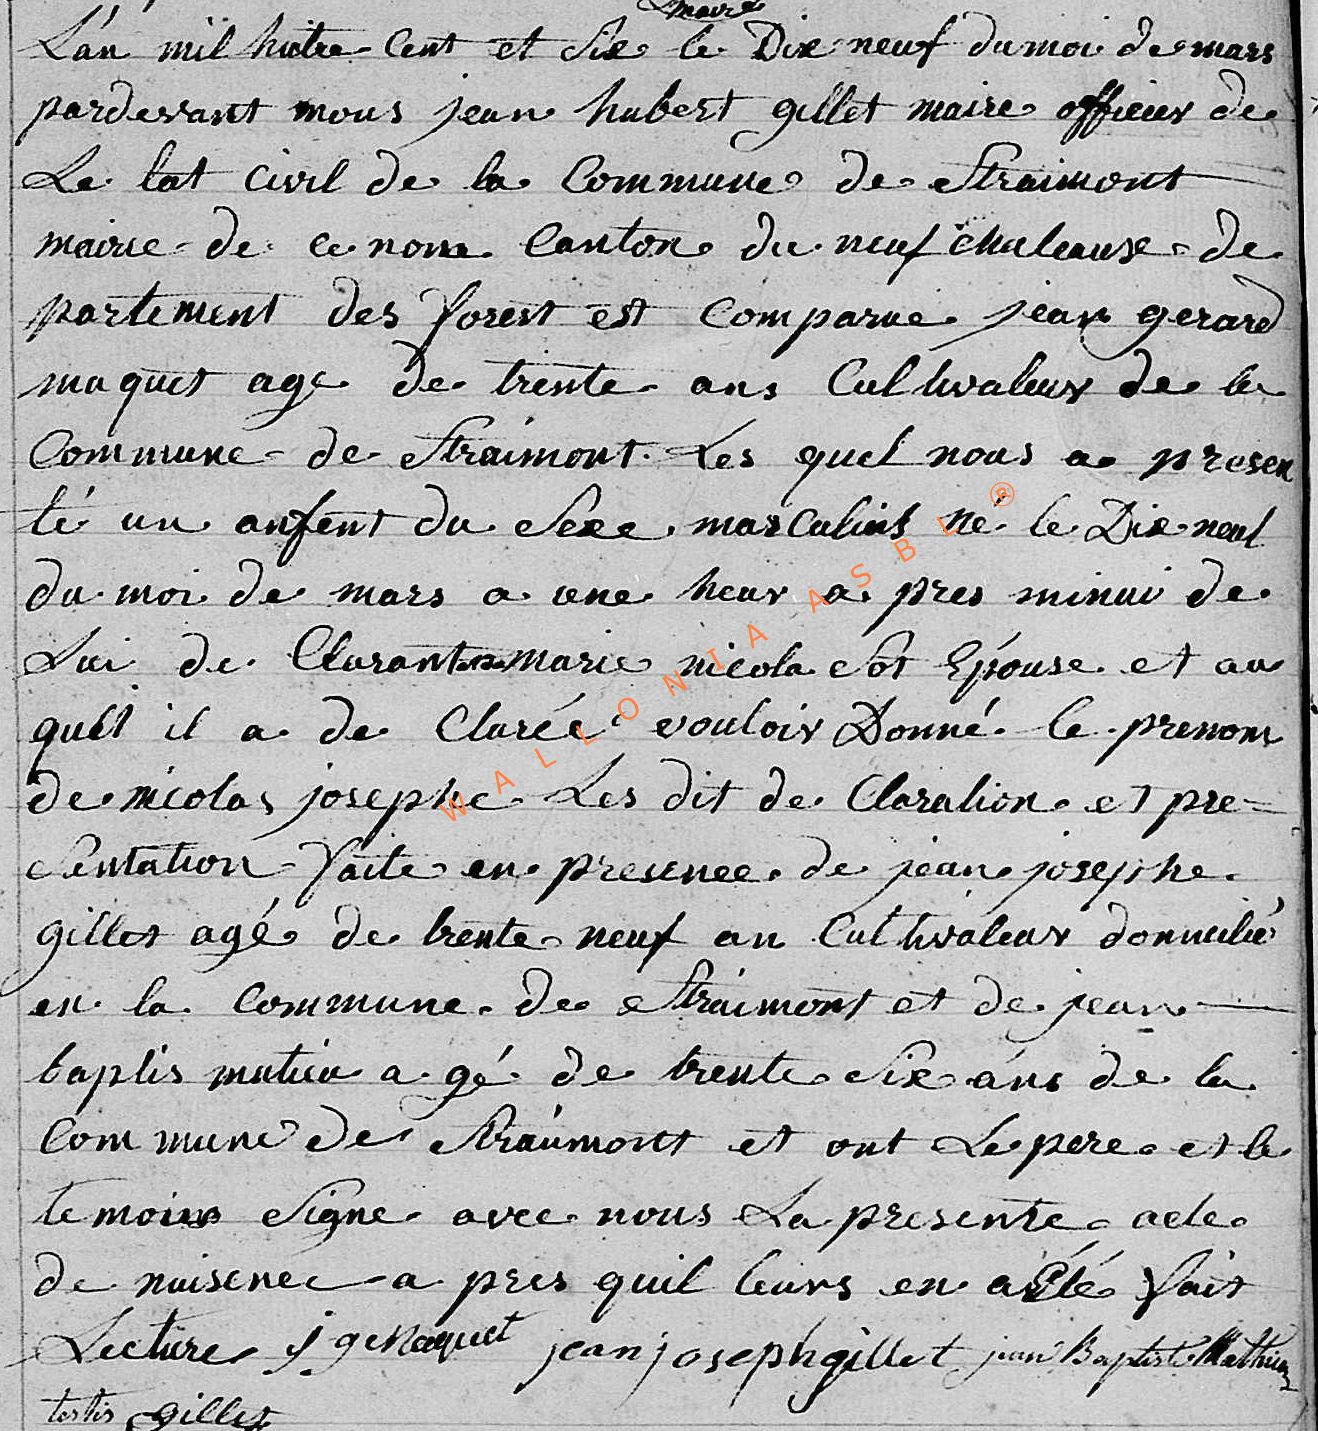 maire
L'an mil huitre Cent et Six le Dix neuf du moi de mars
pardevant nous jean hubert gillet maire officier de
Le tat Civil de la Commune de Straimont
mairie de ce nom Canton du neuf chateause de
partement des forest est Comparue jean gerard
maquet age de trente ans Cultivateur de la
Commune de Straimont Les quel nous a presen
té un anfent du Sexe masculins né le Dix neuf
du moi de mars a une heur a pres minui de
Lui de Clarant marie nicola Sot Epouse et au
quel il a de Claréé vouloir Donné le prenom
de nicolas josephe Les dit de Claration et pre-
sentation faite en presence de jean josephe
gillet agé de trente neuf an Cultivateur domicilié
en la Commune de Straimont et de jean
baptis matieu a gé de trente Six ans de la
Commune de Straimont et ont Le pere et le
temoins Signe avec nous La presente acte
de naisence a pres quil leurs en a Eté fait
Lecture j g Maquet jean joseph gillet jean Baptiste Mathieu
testis gillet
WALLONIA ASBL ®